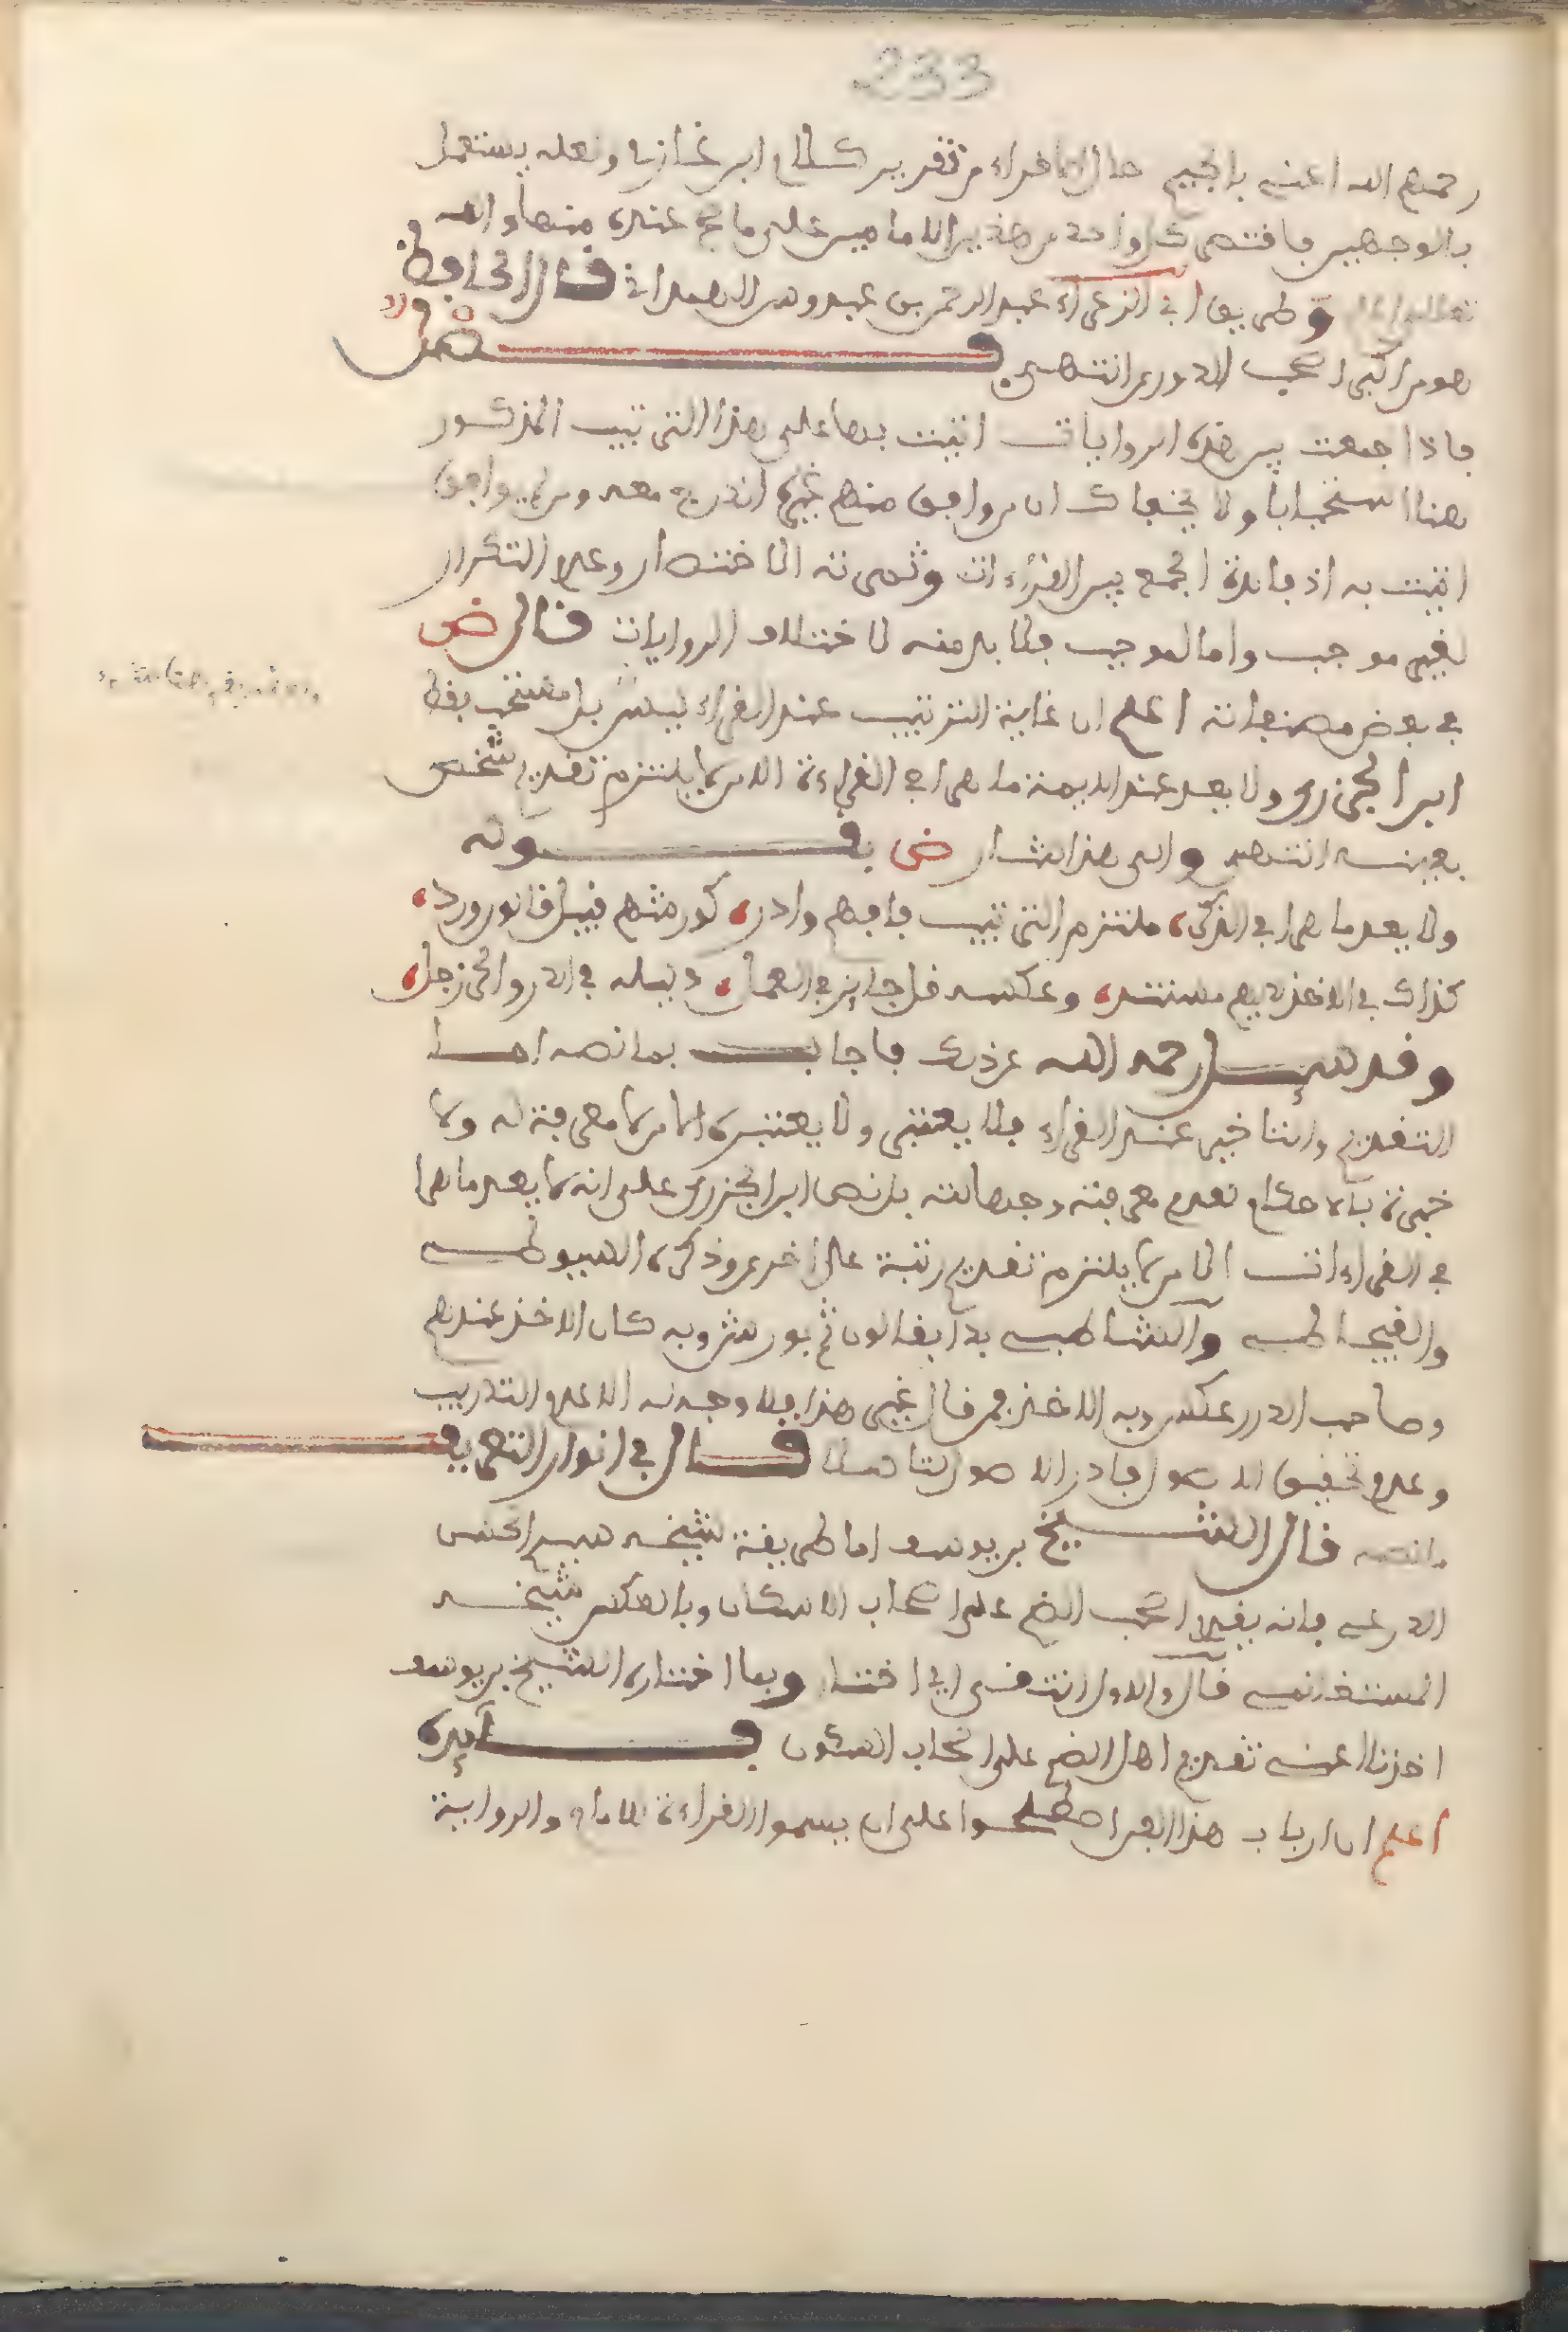 233
رحمهم الله اعنى بالجيم حال الاقراء من تقرير كلام ابن غازي ولعله يستعمل
بالوجهين فاقتصر كل واحد من هذين الامامين على ما صح عنده منهما والله
تعالى اعلم وطريق ابى الزعراء عبد الرحمن بن عبدوس الهمدانى قال الحافظ
هو من اكبر اصحب الدورى انتهى فصل
فاذا جمعت بين هذه الروايات اتيت بها على هذا الترتيب المذكور
هنا استحبابا ولا يخفاك ان من وافق منهم غيره اندرج معه ومن لم يوافق
اتيت به اذ فائدة الجمع بين القراءات وثمرته الاختصار وعدم التكرار
لغير موجب واما لموجب فلا بد منه لاختلاف الروايات قال ض
فى بعض مصنفاته اعلم ان غاية الترتيب عند القراء ليس بل مستحب بقط
ابن الجزرى ولا يعد عند الايمة ماهرا فى القراءة الا من لم يلتزم تقديم شخص
بعينه انتهى والى هذا اشار ض بقوله
ولا يعد ماهرا فى الذكر، ملتزم الترتيب فافهم وادر، كورشهم قبيل قالون ورد،
كذاك فى الاخذ لديهم مستند، وعكسه قل جايز فى العمل، دليله فى الدر والحرز جل،
وقد سئل رحمه الله عن ذلك فاجاب بما نصه اما
التقديم والتاخير عند القراء فلا يعتبر ولا يعتبره الا من لا معرفة له ولا
خبرة بالاحكام لعدم معرفته وجهالته بل نص ابن الجزرى على انه لا يعد ماهرا
فى القراءات الا من لم يلتزم تقديم رتبة على اخرى وذكره السيوطى
والقيجاطى والشاطبى بدا بقالون ثم بورش وبه كان الاخذ عندهم
وصاحب الدرر عكس وبه الاخذ فمن قال غير هذا فلا وجه له الا عدم التدريب
وعدم تحقيق الاصول فادر الاصول تنا هنا قال فى انوار التعريف
ما نصه قال الشيخ بن يوسف اما طريقة شيخه سيد الحسن
الدرعى فانه يقدم اصحب الضم على اصحاب الاسكان وبالعكس شيخه
المستغانمى قال والاول انت فس اى اختار وبما اختاره الشيخ بن يوسف
اخذنا اعنى تقديم اهل الضم على اصحاب السكون فايدة
اعلم ان ارباب هذا الفن اصطلحوا على ان يسموا القراءة للامام والرواية